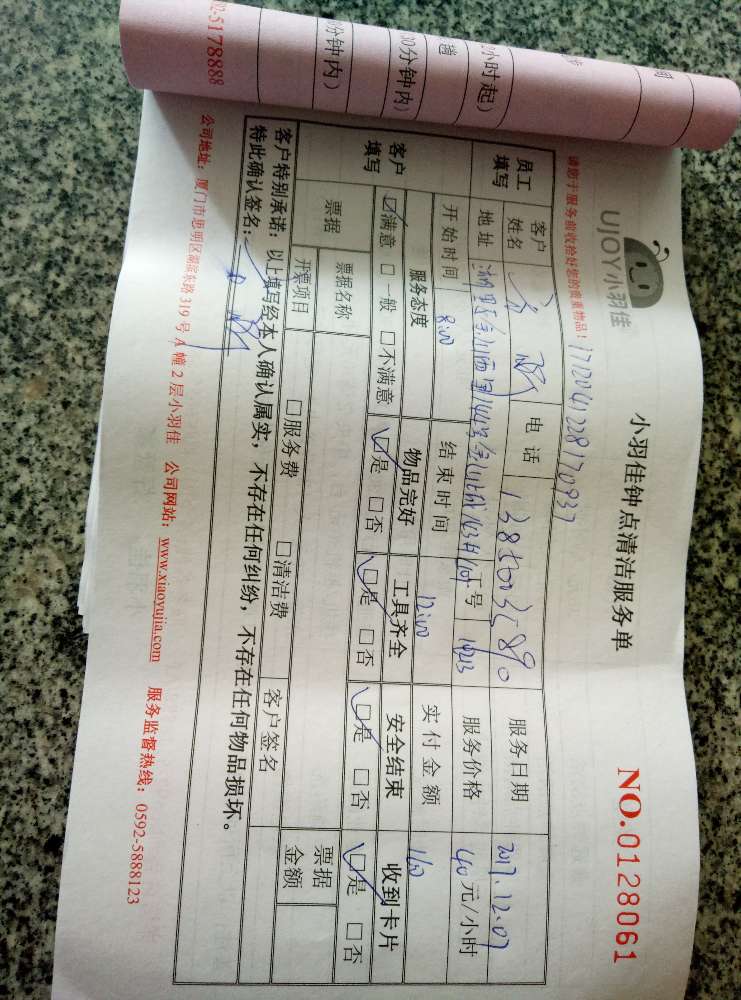 UJOY小羽佳
小羽佳钟点清洁服务单
NO.0128061
请您于服务前收拾好您的贵重物品！
17120412281170937
员工填写 客户姓名 电话 13850035890 服务日期 2017.12.07
地址 工号 1913 服务价格 40元/小时
开始时间 8:00 结束时间 12:00 实付金额 160
客户填写 服务态度 物品完好 工具齐全 安全结束 收到卡片
☑满意 □一般 □不满意 ☑是 □否 ☑是 □否 ☑是 □否 ☑是 □否
票据 票据名称 客户签名 票据金额
开票项目 □服务费 □清洁费
客户特别承诺：以上填写经本人确认属实，不存在任何纠纷，不存在任何物品损坏。
特此确认签名：
公司地址：厦门市思明区湖滨东路319号A幢2层小羽佳 公司网站：www.xiaoyujia.com 服务监督热线：0592-5888123
小时起）
30分钟内）
分钟内）
92-5178888